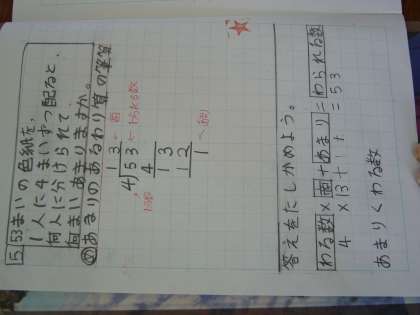 5 53まいの色紙を、
1人に4まいずつ配ると、
何人に分けられて
何まいあまりますか。
あまりのあるわり算の筆算
13 ←商
4)53 ←わられる数
4
13
12
1
答えをたしかめよう。
わる数×商+あまり=わられる数
4×13+1=53
あまり<わる数